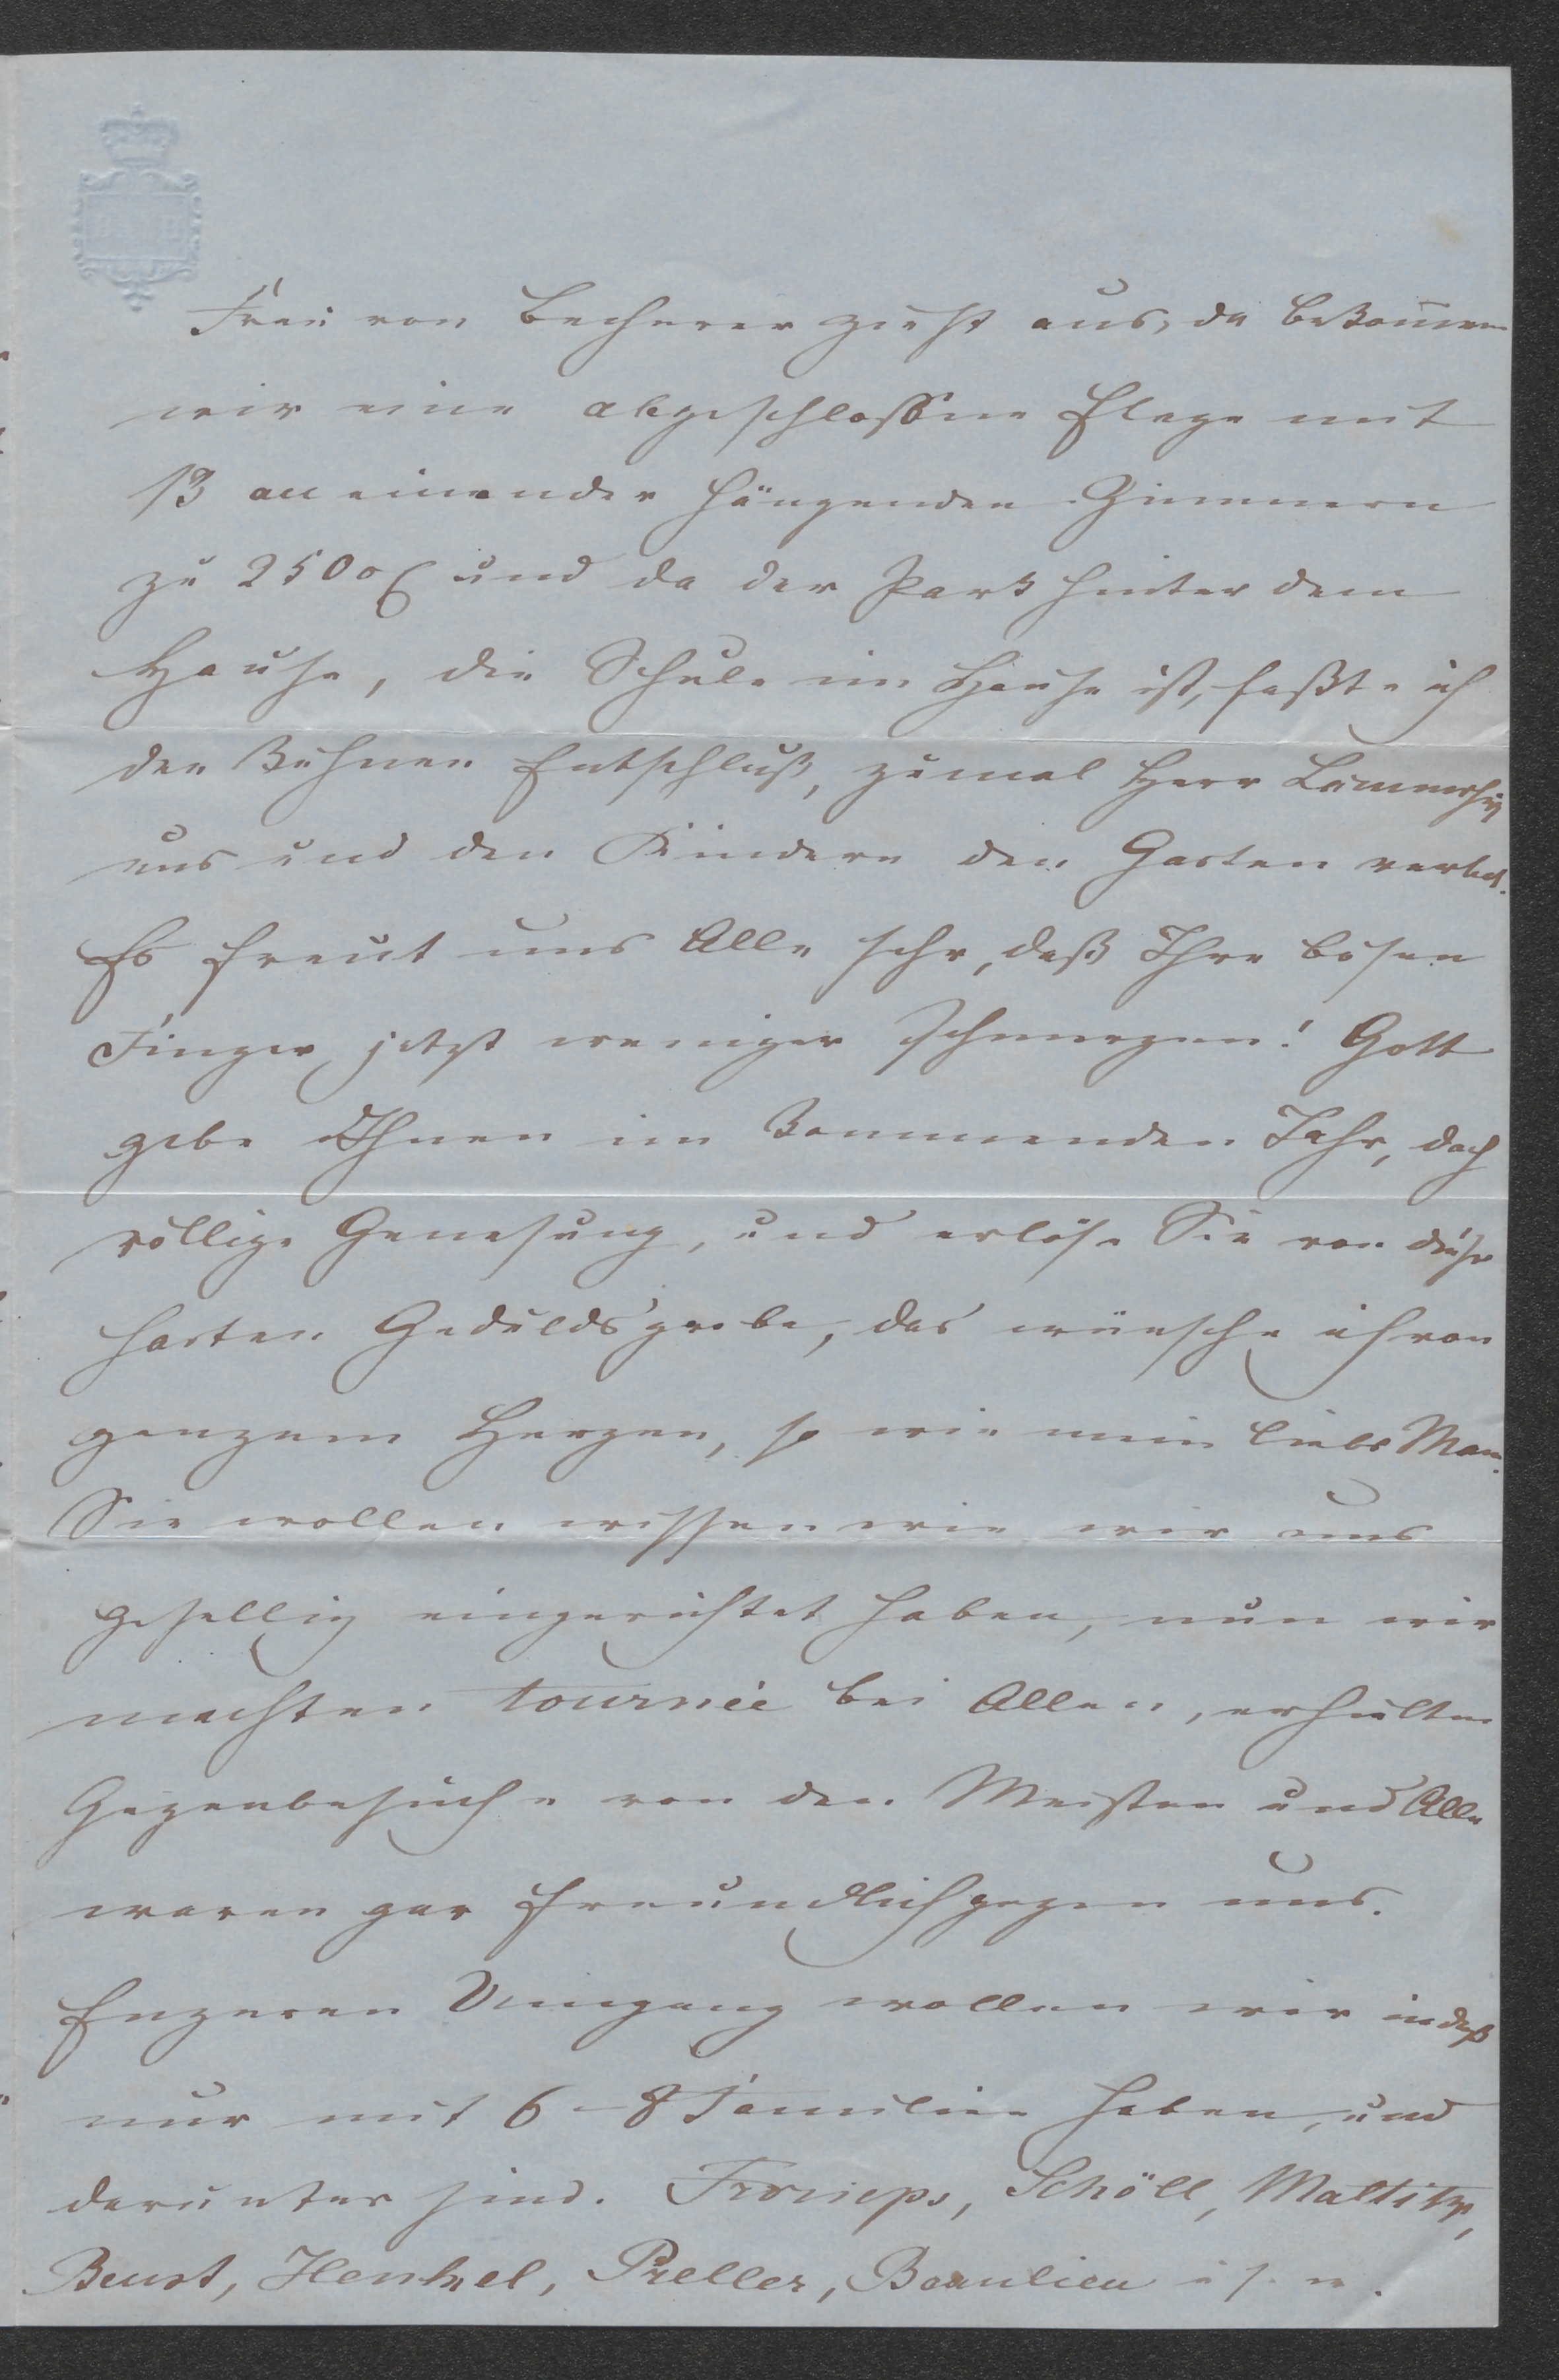 Frau von Becherer zieht aus, da bekom̅en
wir eine abgeschlossene Etage mit
13 an einander hängenden Zimmern
zu 250 und da der Park hinter dem
Hause, die Schule im Hause ist, faßte ich
den kühnen Entschluß, zumal Herr
uns und den Kindern den Garten verbot.
Es freut uns Alle sehr, daß Ihre bösen
Finger jetzt weniger schmerzen! Gott
gebe Ihnen im kommenden Jahr, doch
völlige Genesung, und erlöse Sie von dieser
harten Geduldsprobe, das wünsche ich von
ganzem Herzen, so wie mein lieber Mann.
Sie wollen wissen wie wir uns
gesellig eingerichtet haben, nun wir
machten tournée bei Allen, erhielten
Gegenbesuche von den Meisten und Alle
waren gar freundlich gegen uns.
Engeren Umgang wollen wir indeß
nur mit 6-8 Familien haben, und
darunter sind. Frorieps, Schöll, Maltitz,
Beust, Henkel, Preller, Beaulieu u. s. w.